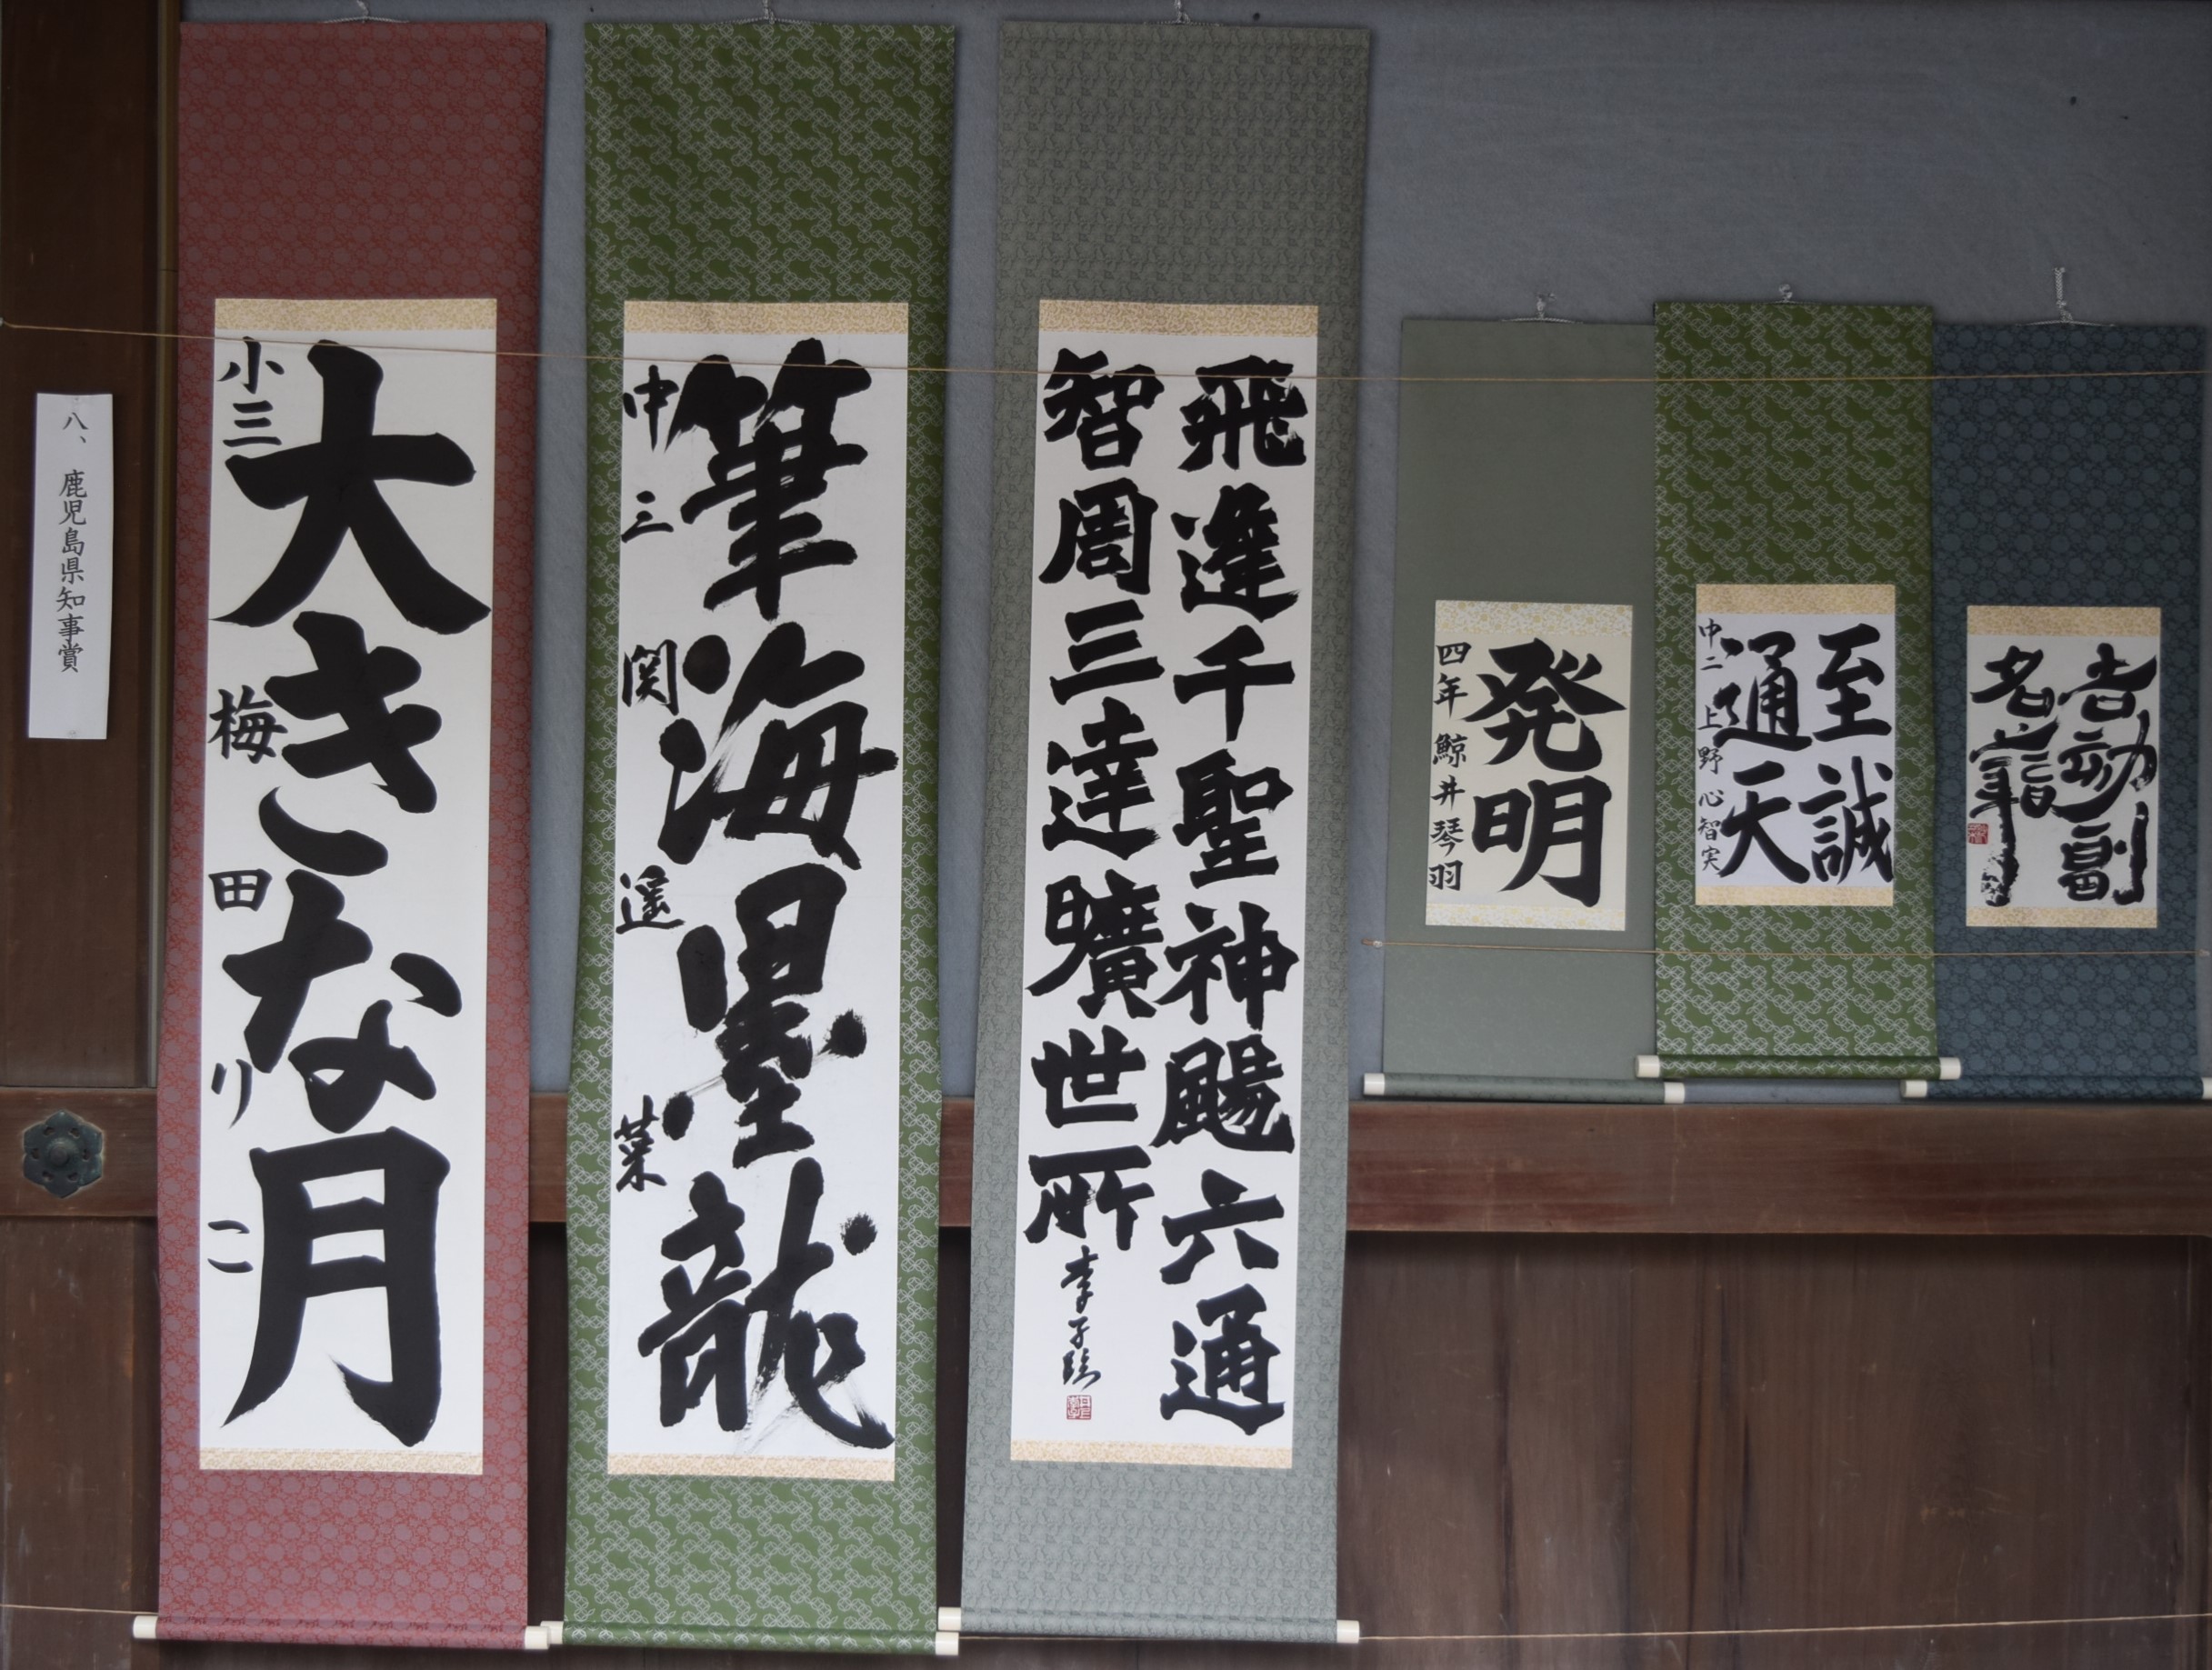 八、鹿児島県知事賞
大きな月
小三 梅田りこ
筆海墨龍
中三 関遥菜
飛達千聖神颺六通
智周三達曠世所
李子
発明
四年 鯨井琴羽
至誠
通天
中二 上野心智実